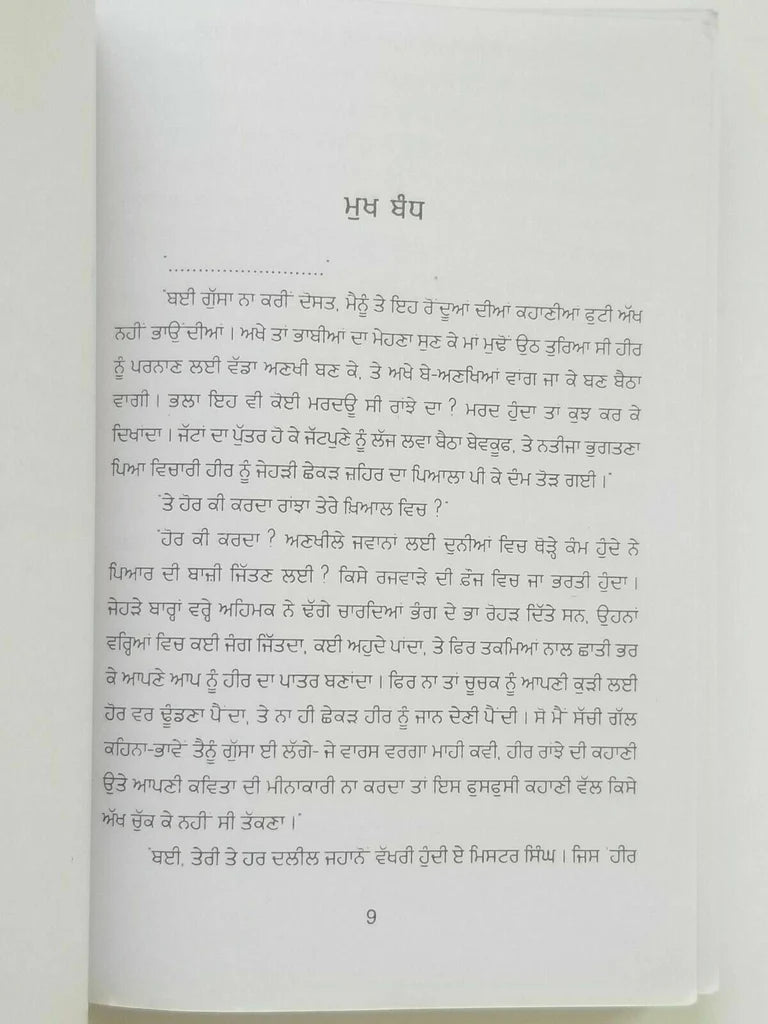 ਮੁਖ ਬੰਧ
'..........................'
'ਬਈ ਗੁੱਸਾ ਨਾ ਕਰੀਂ ਦੋਸਤ, ਮੈਨੂੰ ਤੇ ਇਹ ਰੋਂਦੂਆਂ ਦੀਆਂ ਕਹਾਣੀਆ ਫੁਟੀ ਅੱਖ
ਨਹੀਂ ਭਾਉਂਦੀਆਂ । ਅਖੇ ਤਾਂ ਭਾਬੀਆਂ ਦਾ ਮੇਹਣਾ ਸੁਣ ਕੇ ਮਾਂ ਮੁਢੋਂ ਉਠ ਤੁਰਿਆ ਸੀ ਹੀਰ
ਨੂੰ ਪਰਨਾਣ ਲਈ ਵੱਡਾ ਅਣਖੀ ਬਣ ਕੇ, ਤੇ ਅਖੇ ਬੇ-ਅਣਖਿਆਂ ਵਾਂਗ ਜਾ ਕੇ ਬਣ ਬੈਠਾ
ਵਾਗੀ । ਭਲਾ ਇਹ ਵੀ ਕੋਈ ਮਰਦਊ ਸੀ ਰਾਂਝੇ ਦਾ ? ਮਰਦ ਹੁੰਦਾ ਤਾਂ ਕੁਝ ਕਰ ਕੇ
ਦਿਖਾਦਾ । ਜੱਟਾਂ ਦਾ ਪੁੱਤਰ ਹੋ ਕੇ ਜੱਟਪੁਣੇ ਨੂੰ ਲੱਜ ਲਵਾ ਬੈਠਾ ਬੇਵਕੂਫ, ਤੇ ਨਤੀਜਾ ਭੁਗਤਣਾ
ਪਿਆ ਵਿਚਾਰੀ ਹੀਰ ਨੂੰ ਜੇਹੜੀ ਛੇਕੜ ਜ਼ਹਿਰ ਦਾ ਪਿਆਲਾ ਪੀ ਕੇ ਦੰਮ ਤੋੜ ਗਈ ।'
'ਤੇ ਹੋਰ ਕੀ ਕਰਦਾ ਰਾਂਝਾ ਤੇਰੇ ਖ਼ਿਆਲ ਵਿਚ ?'
'ਹੋਰ ਕੀ ਕਰਦਾ ? ਅਣਖੀਲੇ ਜਵਾਨਾਂ ਲਈ ਦੁਨੀਆਂ ਵਿਚ ਥੋੜ੍ਹੇ ਕੰਮ ਹੁੰਦੇ ਨੇ
ਪਿਆਰ ਦੀ ਬਾਜ਼ੀ ਜਿੱਤਣ ਲਈ ? ਕਿਸੇ ਰਜਵਾੜੇ ਦੀ ਫ਼ੌਜ ਵਿਚ ਜਾ ਭਰਤੀ ਹੁੰਦਾ ।
ਜੇਹੜੇ ਬਾਰ੍ਹਾਂ ਵਰ੍ਹੇ ਅਹਿਮਕ ਨੇ ਢੱਗੇ ਚਾਰਦਿਆਂ ਭੰਗ ਦੇ ਭਾ ਰੋਹੜ ਦਿੱਤੇ ਸਨ, ਉਹਨਾਂ
ਵਰ੍ਹਿਆਂ ਵਿਚ ਕਈ ਜੰਗ ਜਿੱਤਦਾ, ਕਈ ਅਹੁਦੇ ਪਾਂਦਾ, ਤੇ ਫਿਰ ਤਕਮਿਆਂ ਨਾਲ ਛਾਤੀ ਭਰ
ਕੇ ਆਪਣੇ ਆਪ ਨੂੰ ਹੀਰ ਦਾ ਪਾਤਰ ਬਣਾਂਦਾ । ਫਿਰ ਨਾ ਤਾਂ ਚੂਚਕ ਨੂੰ ਆਪਣੀ ਕੁੜੀ ਲਈ
ਹੋਰ ਵਰ ਢੂੰਡਣਾ ਪੈਂਦਾ, ਤੇ ਨਾ ਹੀ ਛੇਕੜ ਹੀਰ ਨੂੰ ਜਾਨ ਦੇਣੀ ਪੈਂਦੀ । ਸੋ ਮੈਂ ਸੱਚੀ ਗੱਲ
ਕਹਿਨਾ-ਭਾਵੇਂ ਤੈਨੂੰ ਗੁੱਸਾ ਈ ਲੱਗੇ- ਜੇ ਵਾਰਸ ਵਰਗਾ ਮਾਹੀ ਕਵੀ, ਹੀਰ ਰਾਂਝੇ ਦੀ ਕਹਾਣੀ
ਉਤੇ ਆਪਣੀ ਕਵਿਤਾ ਦੀ ਮੀਨਾਕਾਰੀ ਨਾ ਕਰਦਾ ਤਾਂ ਇਸ ਫੁਸਫੁਸੀ ਕਹਾਣੀ ਵੱਲ ਕਿਸੇ
ਅੱਖ ਚੁੱਕ ਕੇ ਨਹੀਂ ਸੀ ਤੱਕਣਾ ।'
'ਬਈ, ਤੇਰੀ ਤੇ ਹਰ ਦਲੀਲ ਜਹਾਨੋਂ ਵੱਖਰੀ ਹੁੰਦੀ ਏ ਮਿਸਟਰ ਸਿੰਘ । ਜਿਸ 'ਹੀਰ
9